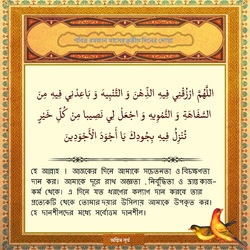 পবিত্র রমজান মাসের তৃতীয় দিনের দোয়া
اللَّهُمَّ ارْزُقْنِي فِيهِ الذِّهْنَ وَ التَّنْبِيهَ وَ بَاعِدْنِي فِيهِ مِنَ
السَّفَاهَةِ وَ التَّمْوِيهِ وَ اجْعَلْ لِي نَصِيبا مِنْ كُلِّ خَيْرٍ
تُنْزِلُ فِيهِ بِجُودِكَ يَا أَجْوَدَ الْأَجْوَدِينَ
হে আল্লাহ । আজকের দিনে আমাকে সচেতনতা ও বিচক্ষণতা
দান কর। আমাকে দূরে রাখ অজ্ঞতা , নির্বুদ্ধিতা ও ভ্রান্ত কাজ-
কর্ম থেকে। এ দিনে যত ধরণের কল্যাণ দান করবে তার
প্রত্যেকটি থেকে তোমার দয়ার উসিলায় আমাকে উপকৃত কর।
হে দানশীলদের মধ্যে সর্বোত্তম দানশীল।